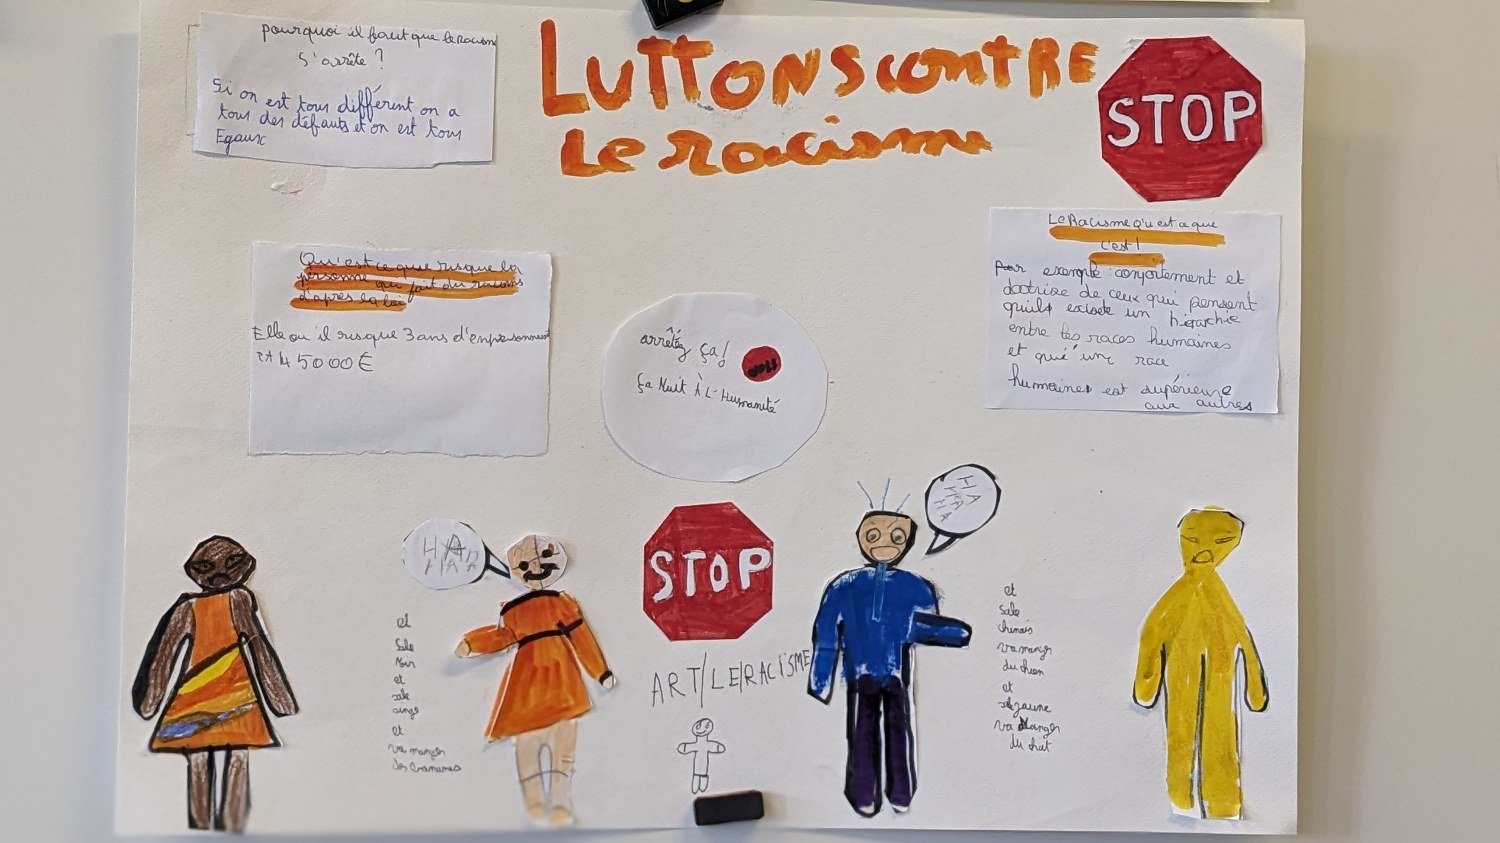 pourquoi il faut que le racism
s'arrête ?
Si on est tous différent on a
tous des défauts et on est tous
Egaux
LUTTONS contRE
Le racisme
STOP
Qu'est ce que risque la
personne qui fait du racisme
d'après la loi
Elle ou il risque 3 ans d'enprisonnement
et 45000€
arrêtéz ça!
STOP
ça Nuit À L'Humanité
Le Racisme qu'est ce que
c'est!
Par exemple : conportement et
doctrise de ceux qui pensent
quils existe un hierarchie
entre les races humaines
et qu'une race
humaine est supérieure
aux autres
HA HA
HA HA
STOP
HA
HA
HA
et
Sale
Noir
et
sale
singe
et
va manger
des bananes
ART/LE/RACISME
et
sale
chinois
va manger
du chien
et
sale jaune
va manger
du chat